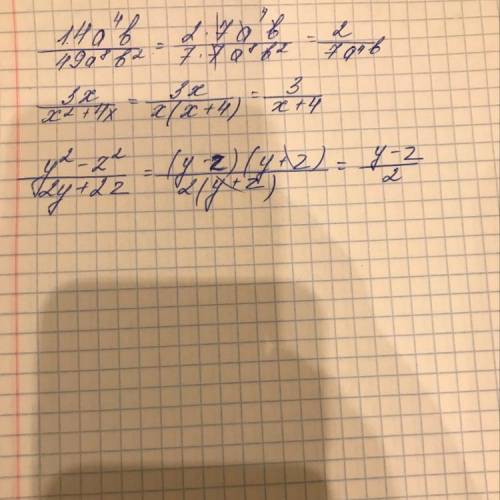 14a⁴b/49a⁸b² = 2·7a⁴b/7·7a⁸b² = 2/7a⁴b
3x/x²+4x = 3x/x(x+4) = 3/x+4
y²-z²/2y+2z = (y-z)(y+z)/2(y+z) = y-z/2